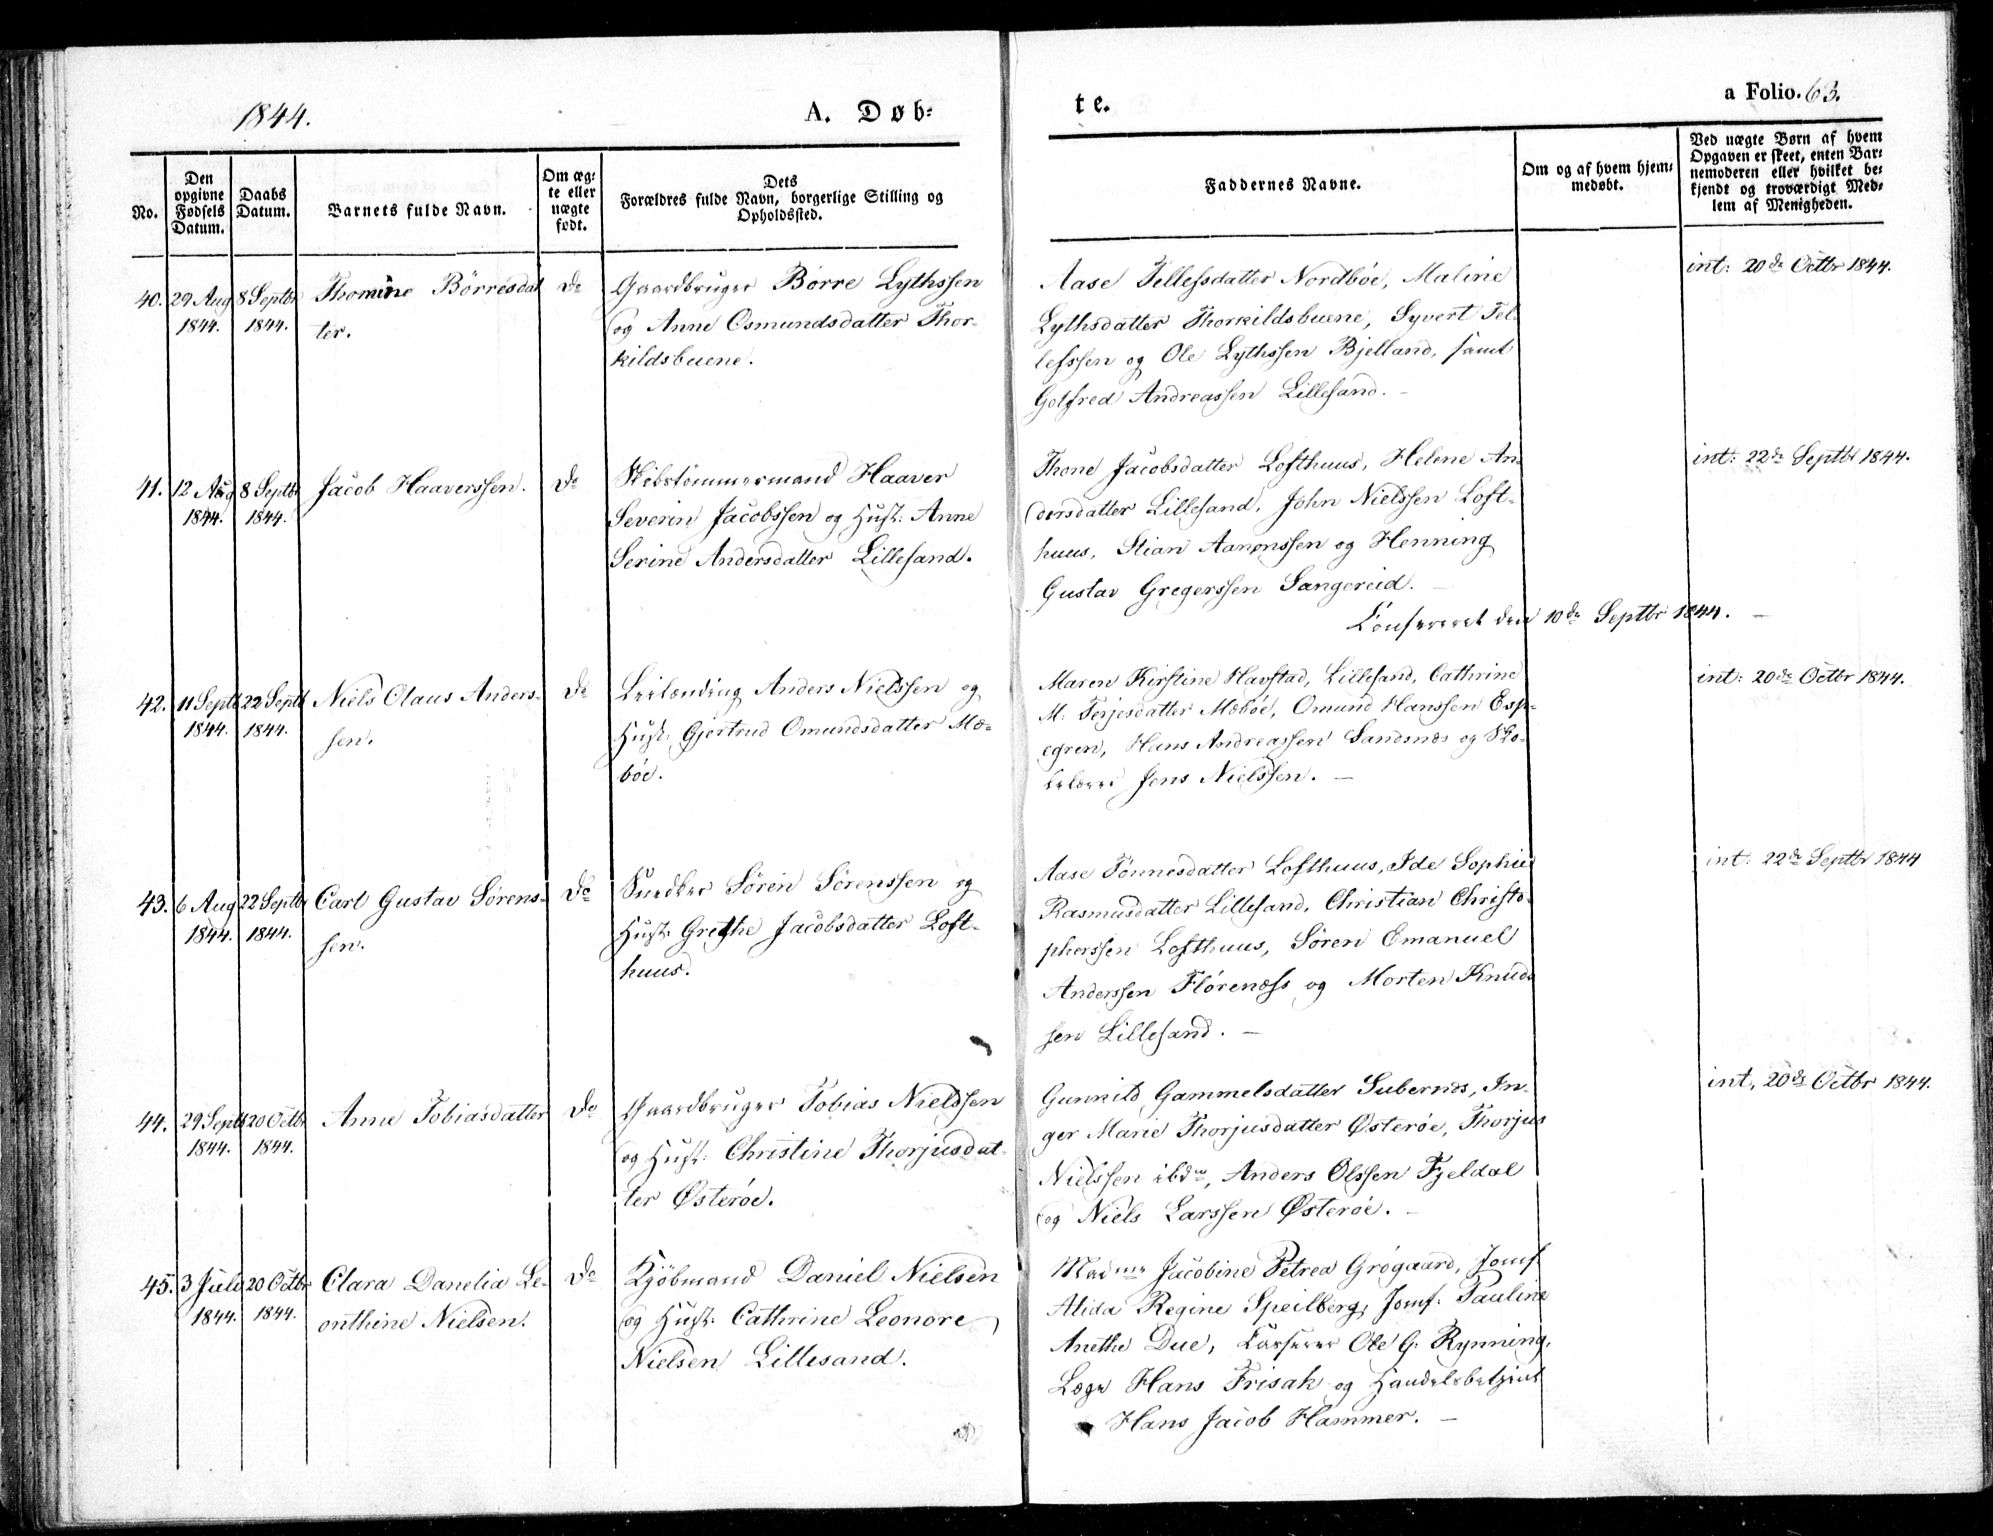 1844.
A. Døb-
te.
a Folio. 63.
No.
Den
opgivne
Fødsels
Datum.
Daabs
Datum.
Barnets fulde Navn.
Om æg-
te eller
uægte
født.
Dets
Forældres fulde Navn, borgerlige Stilling og
Opholdssted.
Faddernes Navne.
Om og af hvem hjem-
medøbt.
Ved uægte Børn af hvem
Opgaven er skeet, enten Bar-
nemoderen eller hvilket be-
kjendt og troværdigt Med-
lem af Menigheden.
40.
29 Aug
1844.
8 Septbr
1844.
Thomine Börresdat
ter.
Do
Gaardbruger Börre Lythssen
og Anne Osmundsdatter Thor-
kildsbuene.
Aase Tellefsdatter Nordböe, Maline
Lythsdatter Thorkildsbuene, Syvert Tel-
lefssen og Ole Lythssen Bjelland, samt
Golfred Andreassen Lillesand. -
int: 20de Octbr 1844.
41.
12 Aug
1844.
8 Septbr
1844.
Jacob Haaverssen.
Do
Skibstømmermand Haaver
Severin Jacobssen og Hust: Anne
Serine Andersdatter Lillesand.
Thone Jacobsdatter Lofthuus, Helene An-
dersdatter Lillesand, John Nielssen Loft-
huus, Stian Aanonssen og Henning
Gustav Gregerssen Sangereid. -
int: 22de Septbr 1844.
Confereret den 10de Septbr 1844. -
42.
11 Septb
1844.
22 Septb
1844.
Niels Olaus Anders-
sen.
Do
Leilænding Anders Nielssen og
Hust: Gjertrud Omundsdatter Mæ-
böe.
Maren Kirstine Havstad, Lillesand, Cathrine
M: Terjesdatter Mæböe, Omund Hanssen Esp-
egren, Hans Andreassen Sandsnæs og Sko-
lelærer Jens Nielssen. -
int: 20de Octbr 1844.
43.
6 Aug
1844.
22 Septbr
1844.
Carl Gustav Sörens-
sen.
Do
Snedker Sören Sörenssen og
Hust: Grethe Jacobsdatter Loft-
huus.
Aase Tönnesdatter Lofthuus, Ide Sophie
Rasmusdatter Lillesand, Christian Christo-
pherssen Lofthuus, Sören Emanuel
Anderssen Flörenæss og Morten Knuds
sen Lillesand. -
int: 22de Septbr 1844
44.
29 Septb
1844.
20 Octbr
1844.
Anne Tobiasdatter
Do
Gaardbruger Tobias Nielssen
og Hust: Christine Thorjusdat-
ter Østeröe.
Gunnild Gammelsdatter Subernæs, In-
ger Marie Thorjusdatter Østeröe, Thorjus
Nielssen ibdm, Anders Olssen Fjeldal
og Niels Larssen Østeröe. -
int, 20de Octbr 1844.
45.
3 July
1844.
20 Octbr
1844.
Clara Danelia Le-
onthine Nielsen.
Do
Kjöbmand Daniel Nielsen
og Hust: Cathrine Leonore
Nielsen Lillesand.
Madme Jacobine Petrea Grögaard, Jomf
Alida Regine Speilberg, Jomf: Pauline
Anethe Due, Casserer Ole G. Rynning,
Læge Hans Frisak og Handelsbetjent
Hans Jacob Hammer. -